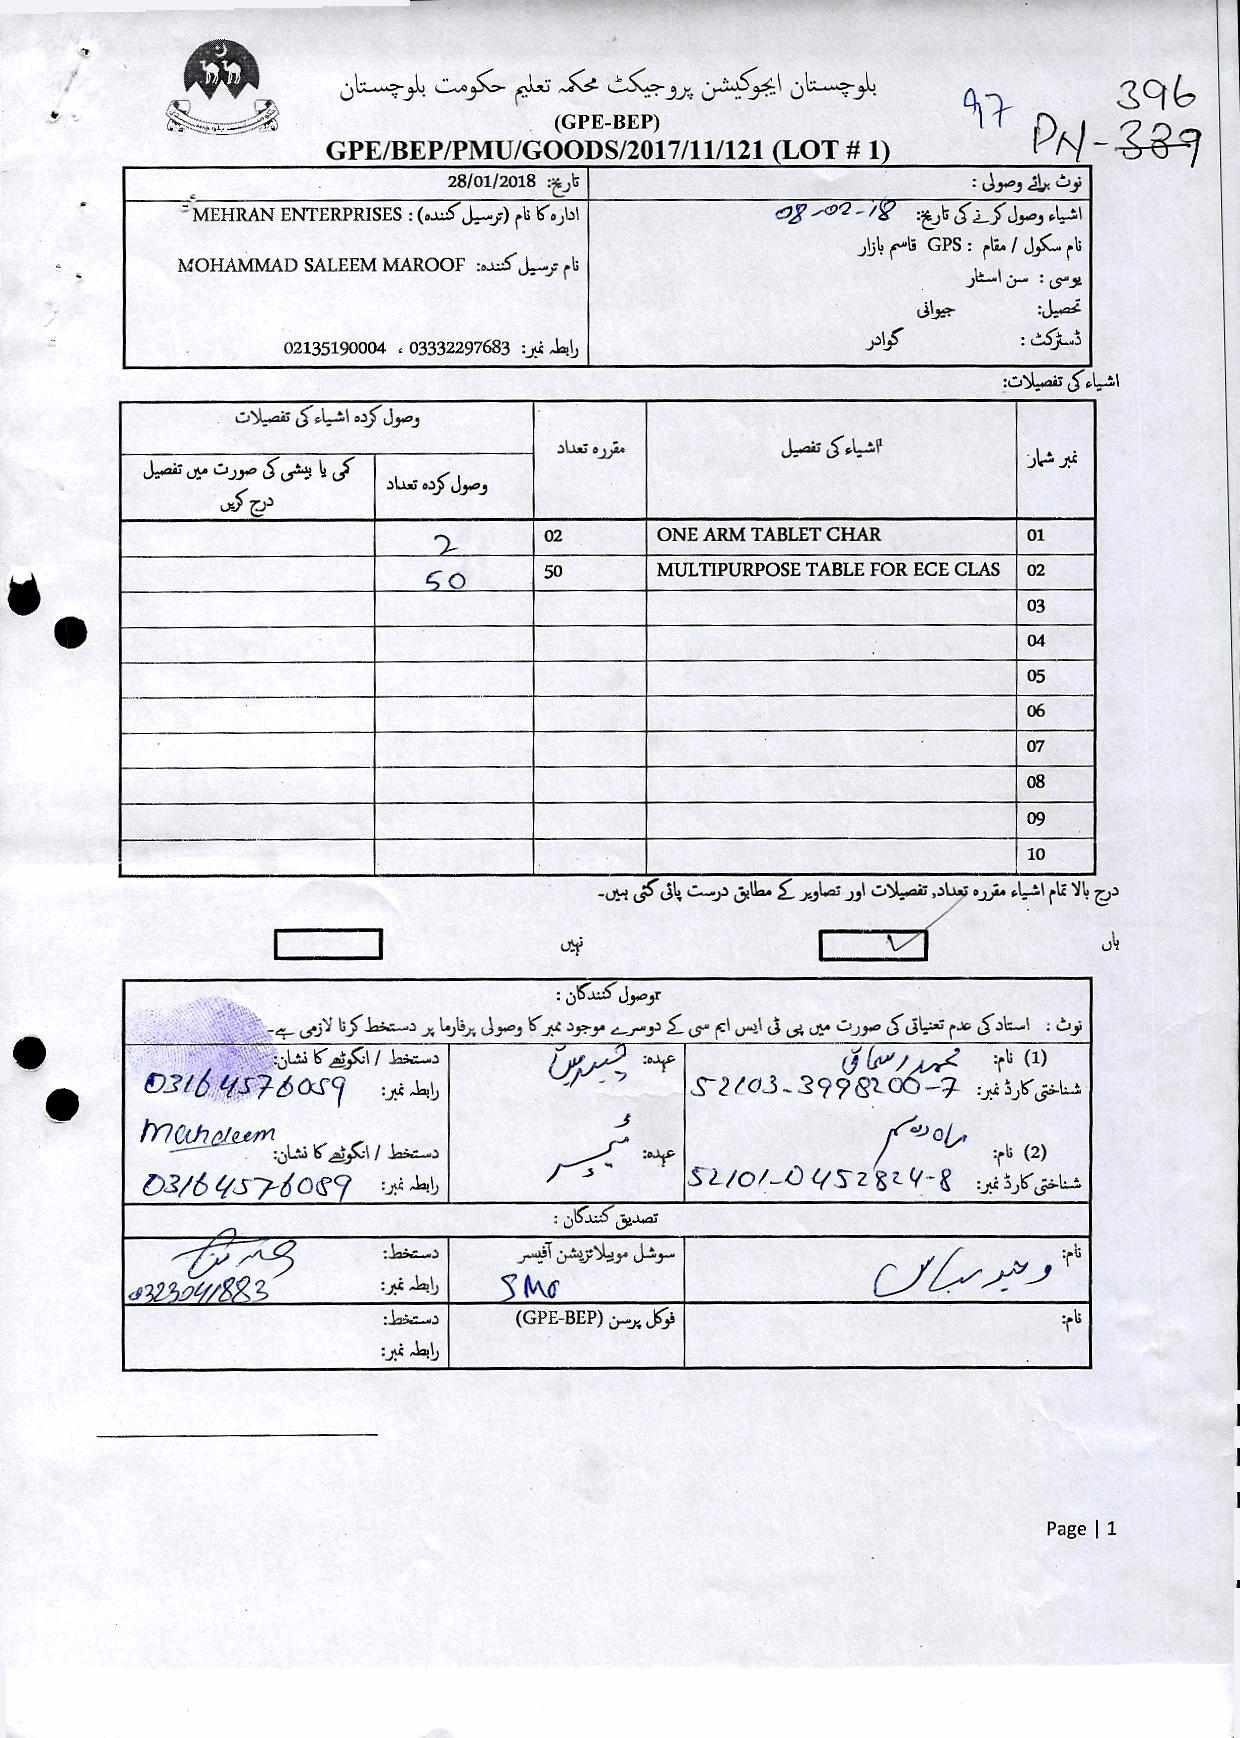 بلوچستان ایجوکیشن پروجیکٹ محکمہ تعلیم حکومت بلوچستان
(GPE-BEP)
GPE/BEP/PMU/GOODS/2017/11/121 (LOT # 1)
97
396
PN-389
نوٹ برائے وصولی :
تاریخ: 28/01/2018
اشیاء وصول کرنے کی تاریخ: 08-02-18
ادارہ کا نام (ترسیل کنندہ) : MEHRAN ENTERPRISES
نام سکول / مقام : GPS قاسم بازار
نام ترسیل کنندہ: MOHAMMAD SALEEM MAROOF
یوسی : سن اسٹار
تحصیل: جیوانی
ڈسٹرکٹ : گوادر
رابطہ نمبر: 03332297683 ، 02135190004
اشیاء کی تفصیلات:
نمبر شمار
اشیاء کی تفصیل
مقررہ تعداد
وصول کردہ اشیاء کی تفصیلات
وصول کردہ تعداد
کمی یا بیشی کی صورت میں تفصیل
درج کریں
01 ONE ARM TABLET CHAR 02 2
02 MULTIPURPOSE TABLE FOR ECE CLAS 50 50
03
04
05
06
07
08
09
10
درج بالا تمام اشیاء مقررہ تعداد, تفصیلات اور تصاویر کے مطابق درست پائی گئی ہیں۔
ہاں
نہیں
وصول کنندگان :
نوٹ : استاد کی عدم تعنیاتی کی صورت میں پی ٹی ایس ایم سی کے دوسرے موجود نمبر کا وصولی پرفارما پر دستخط کرنا لازمی ہے۔
(1) نام: محمد اسحاق
عہدہ: چیئرمین
دستخط / انگوٹھے کا نشان:
شناختی کارڈ نمبر: 52103-3998200-7
رابطہ نمبر: 03164576059
(2) نام:
عہدہ:
دستخط / انگوٹھے کا نشان: Mahdeem
شناختی کارڈ نمبر: 52101-0452824-8
رابطہ نمبر: 03164576089
تصدیق کنندگان :
نام:
سوشل موبیلائزیشن آفیسر
SMO
دستخط:
رابطہ نمبر: 0323041883
نام:
فوکل پرسن (GPE-BEP)
دستخط:
رابطہ نمبر:
Page | 1